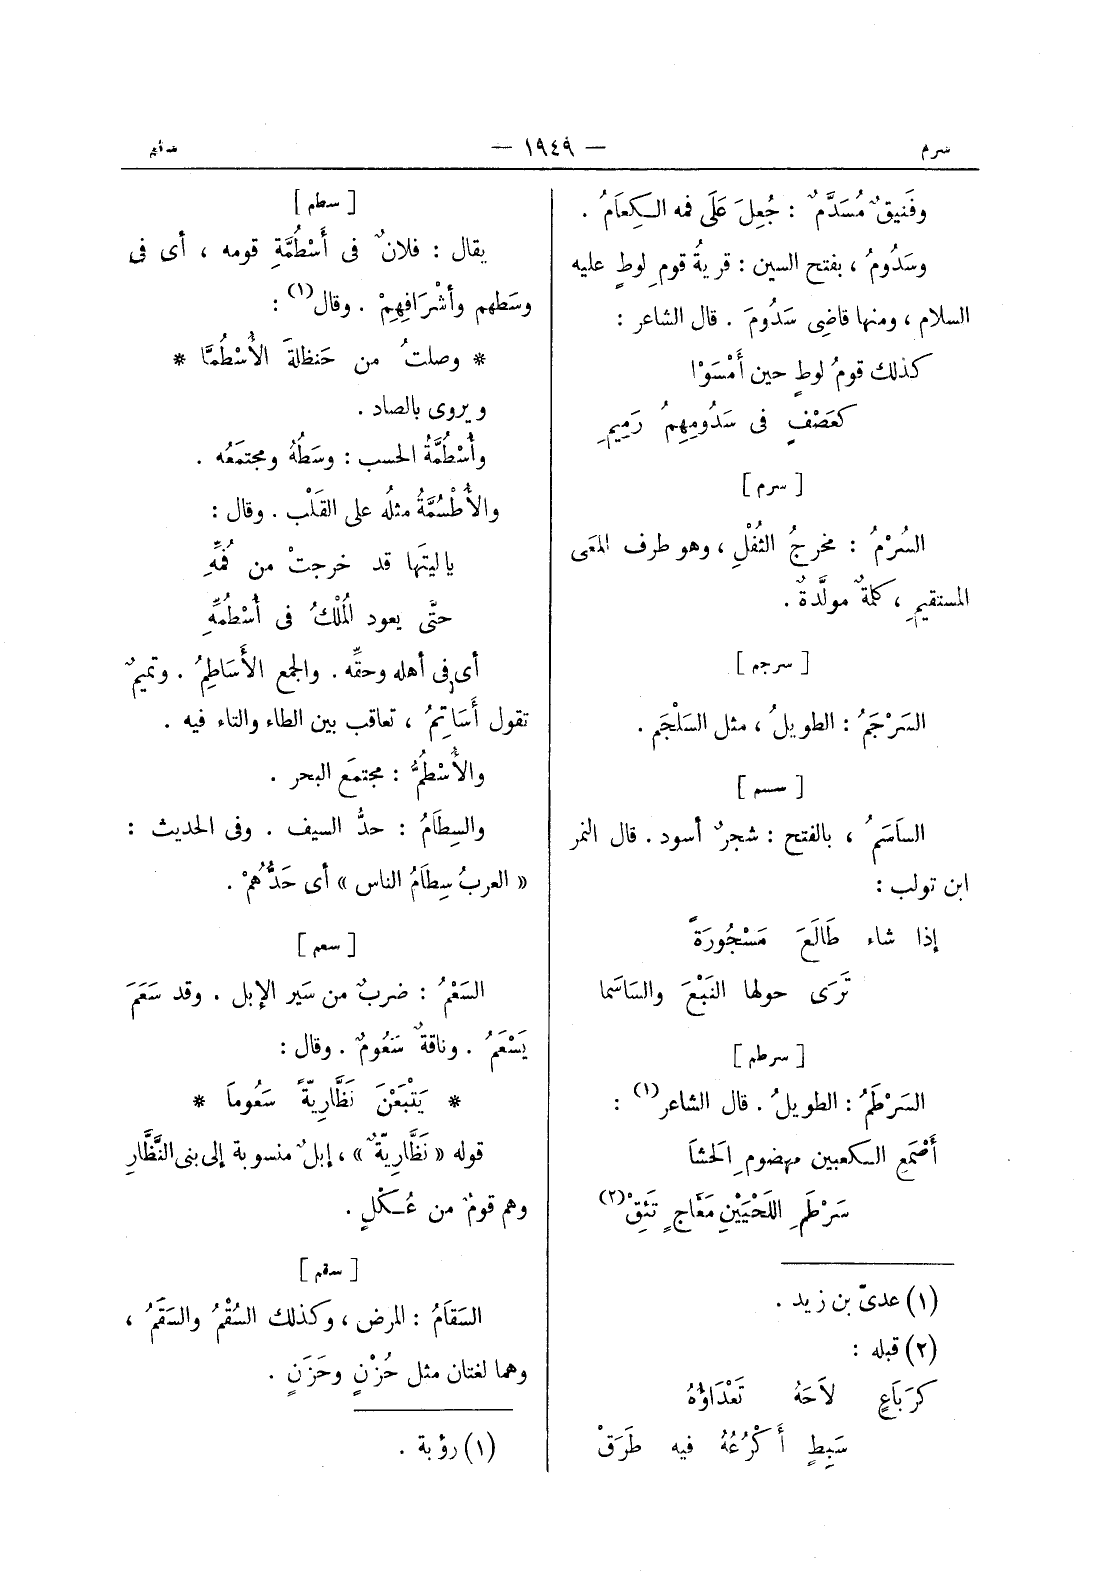 سرم
— ١٩٤٩ —
وفَنيقٌ مُسَدَّمٌ : جُعِلَ عَلَى فمه الكِعَامُ .
وسَدُومُ ، بفتح السين : قريةُ قومِ لوطٍ عليه
السلام ، ومنها قاضِى سَدُومَ . قال الشاعر :
كذلك قومُ لوطٍ حين أَمْسَوْا
كعَصْفٍ فى سَدُومِهِمُ رَمِيمِ
[ سرم ]
السُرْمُ : مخرجُ الثُفْلِ ، وهو طرف المَعَى
المستقيمِ ، كلمةٌ مولَّدةٌ .
[ سرجم ]
السَرْجَمُ : الطويلُ ، مثل السَلْجَمِ .
[ سسم ]
السَاَسَمُ ، بالفتح : شجرٌ أسود . قال النمر
ابن تولب :
إذا شاء طَالَعَ مَسْجُورَةً
تَرَى حولها النَبْعَ والسَاسَما
[ سرطم ]
السَرْطَمُ : الطويلُ . قال الشاعر (١) :
أَصْمَعِ الكعبين مهضومِ الحَشَا
سَرْطَمِ اللَحْيَيْنِ مَعَّاجٍ تَئِقْ (٢)
(١) عدىّ بن زيد .
(٢) قبله :
كرَبَاعٍ لاَحَهُ تَعْدَاؤُهُ
سَبِطٍ أَكْرُعُهُ فيه طَرَقْ
[ سطم ]
يقال : فلانٌ فى أُسْطُمَّةِ قومه ، أى فى
وسَطهم وأشْرَافِهِمْ . وقال (١) :
* وصلتُ من حَنظلةَ الأُسْطُمَّا *
ويروى بالصاد .
وأُسْطُمَّةُ الحسب : وسَطُهُ ومجتمَعُه .
والأُطْسُمَّةُ مثلُه على القَلْب . وقال :
ياليتَها قد خرجتْ من فُمِّهِ
حتَّى يعود المُلْكُ فى أُسْطُمِّهِ
أى فى أهله وحقِّه . والجمع الأَسَاطِمُ . وتميمٌ
تقول أَسَاتِمُ ، تعاقب بين الطاء والتاء فيه .
والأُسْطُمُّ : مجتمَع البحر .
والسِطَامُ : حدُّ السيف . وفى الحديث :
« العربُ سِطَامُ الناس » أى حَدُّهُمْ .
[ سعم ]
السَعْمُ : ضربٌ من سَير الإبل . وقد سَعَمَ
يَسْعَمُ . وناقةٌ سَعُومٌ . وقال :
* يَتْبَعْنَ نَظَّارِيّةً سَعُوماَ *
قوله « نَظَّارِيّةً » ، إبلٌ منسوبة إلى بنى النَّظَّارِ
وهم قومٌ من عُكْلٍ .
[ سقم ]
السَقاَمُ : المرض ، وكذلك السُقْمُ والسَقَمُ ،
وهما لغتان مثل حُزْنٍ وحَزَنٍ .
(١) رؤبة .